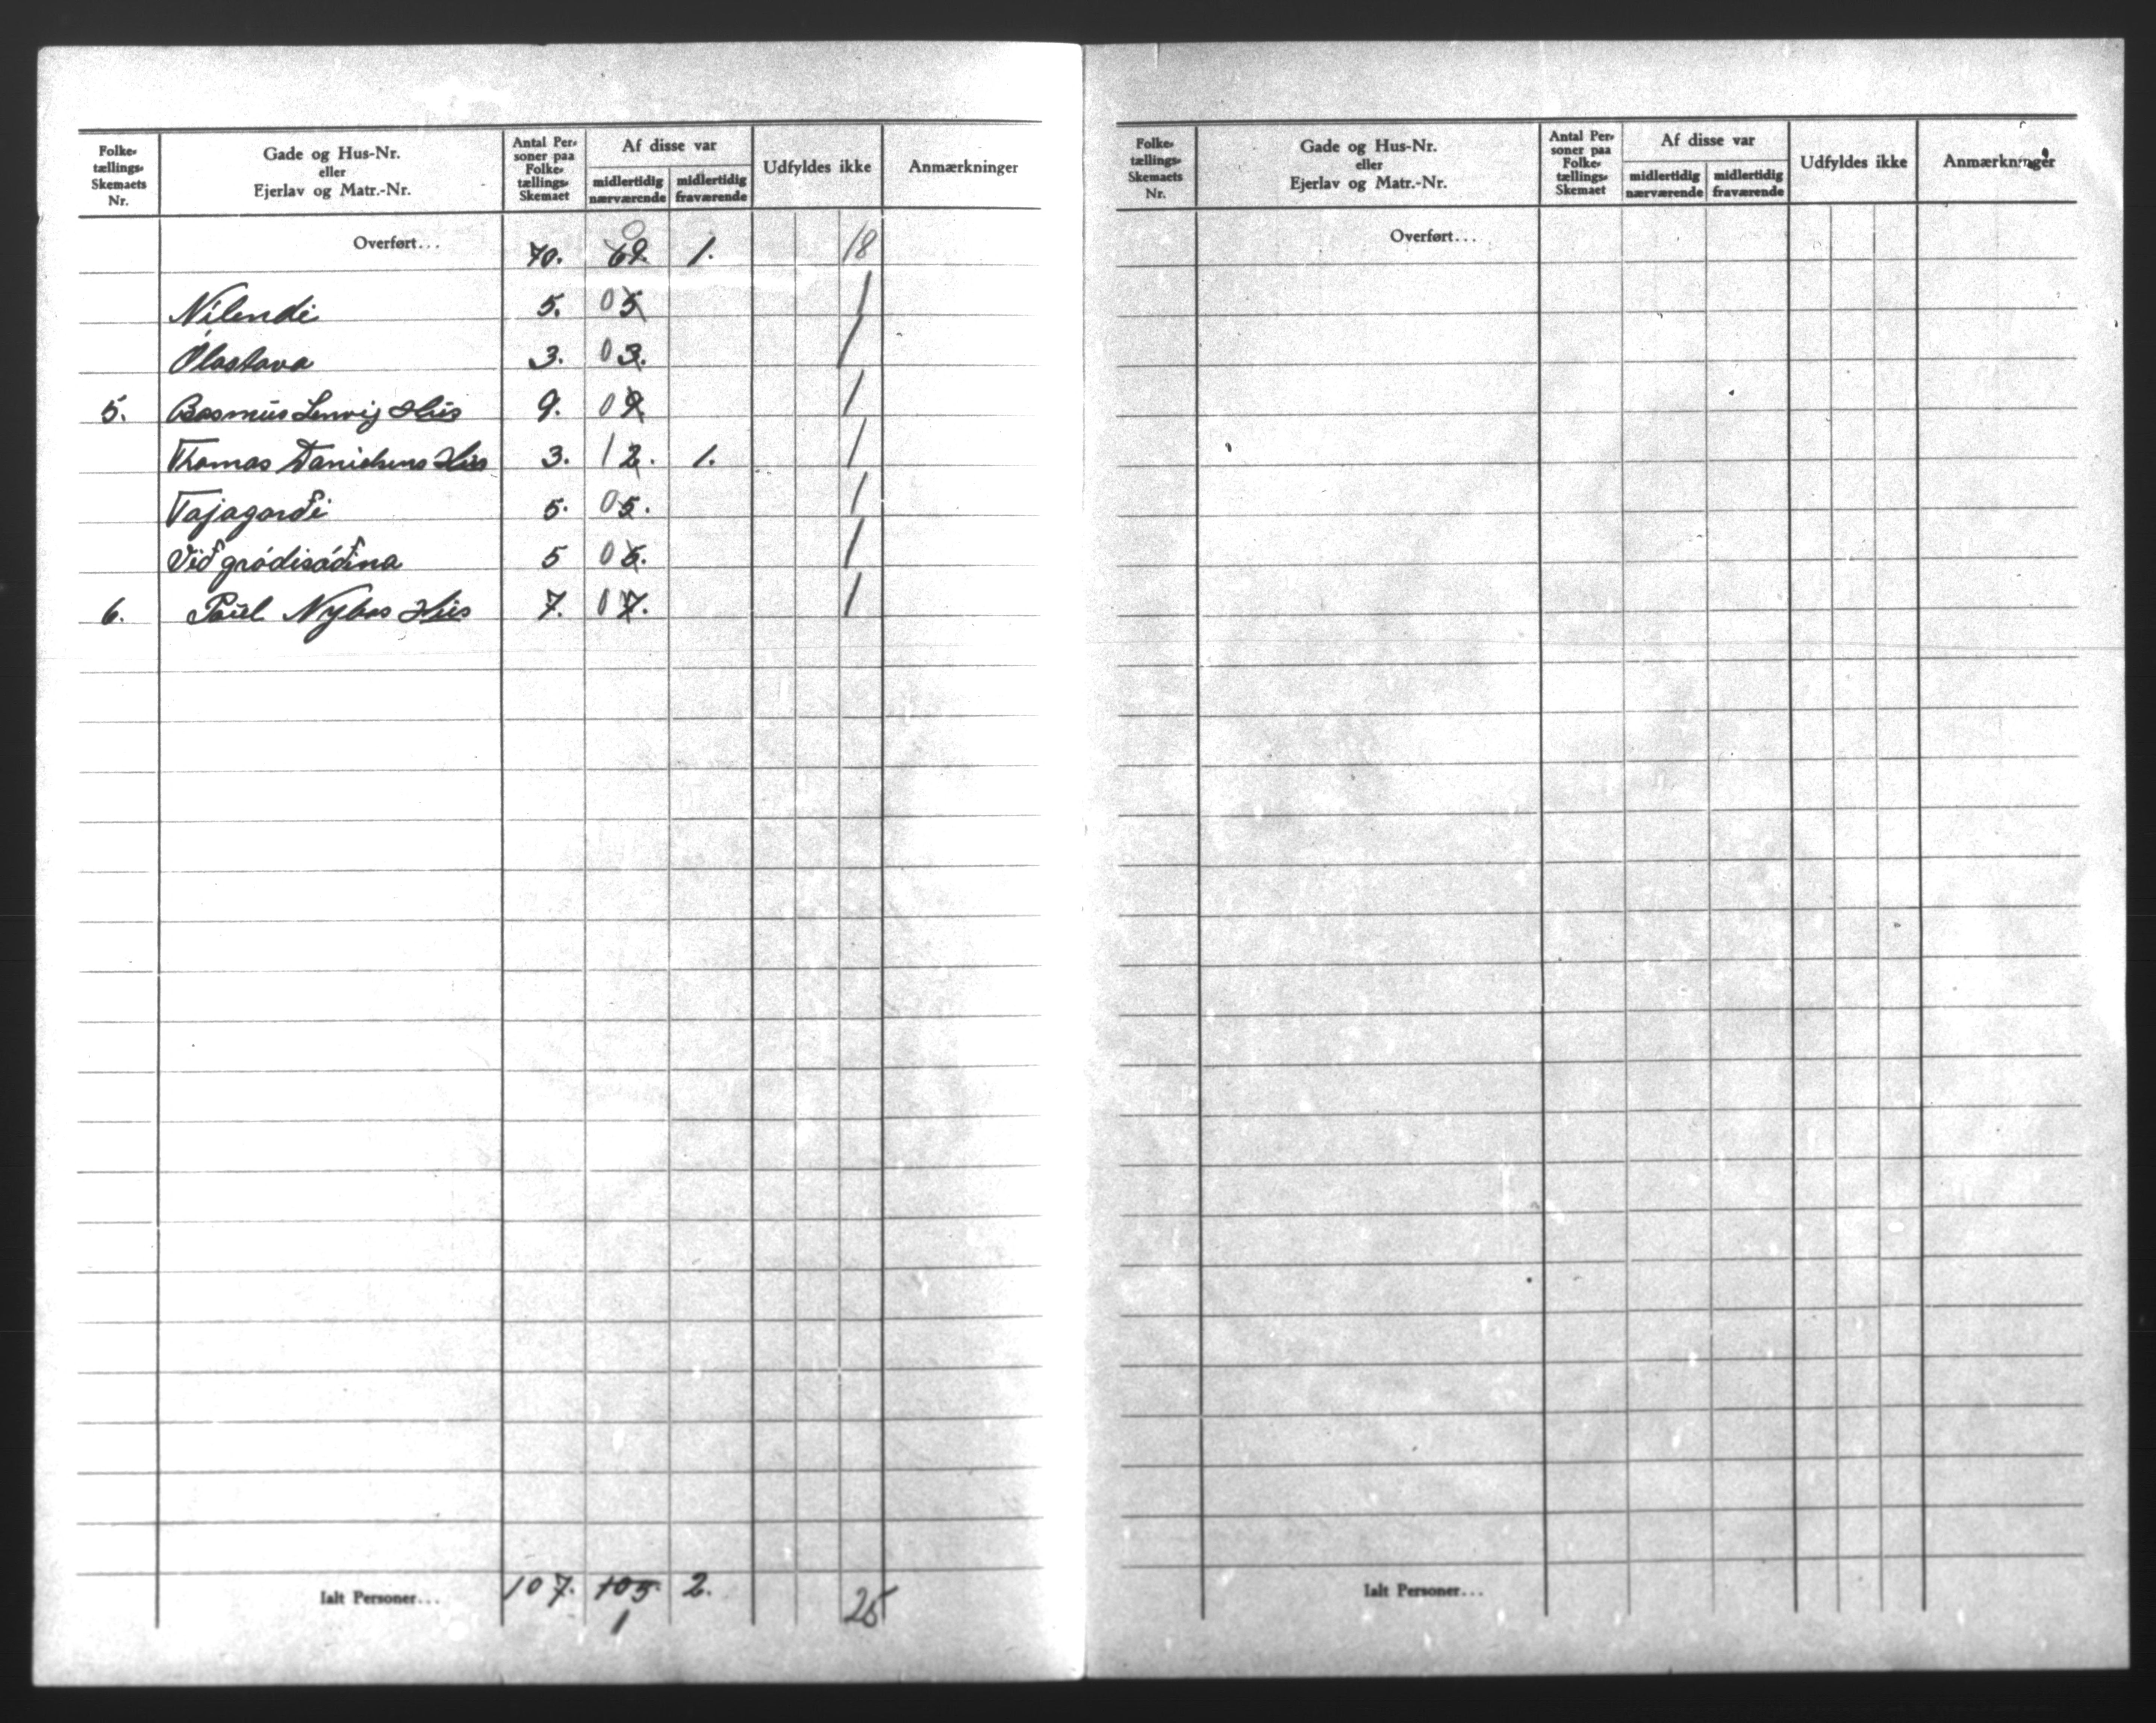 Folke-
tællings-
Skemaets
Nr.
Gade og Hus-Nr.
eller
Ejerlav og Matr.-Nr.
Antal Per-
soner paa
Folke-
tællings-
Skemaet
Af disse var
midlertidig
nærværende
midlertidig
fraværende
Udfyldes ikke
Anmærkninger
Overført... 70. 69. 0 1. 18
Nílendi 5. 0 5 1
Ólastova 3. 0 3. 1
5. Rasmus Lervig Hús 9. 0 9. 1
Thomas Danielsens Hús 3. 1 2. 1. 1
Tajagarði 5. 0 5. 1
Við gródisáðina 5 0 5. 1
6. Poül Nybos Hús 7. 0 7. 1
Ialt Personer... 107. 105. 2. 25
1
Folke-
tællings-
Skemaets
Nr.
Gade og Hus-Nr.
eller
Ejerlav og Matr.-Nr.
Antal Per-
soner paa
Folke-
tællings-
Skemaet
Af disse var
midlertidig
nærværende
midlertidig
fraværende
Udfyldes ikke
Anmærkninger
Overført...
Ialt Personer...